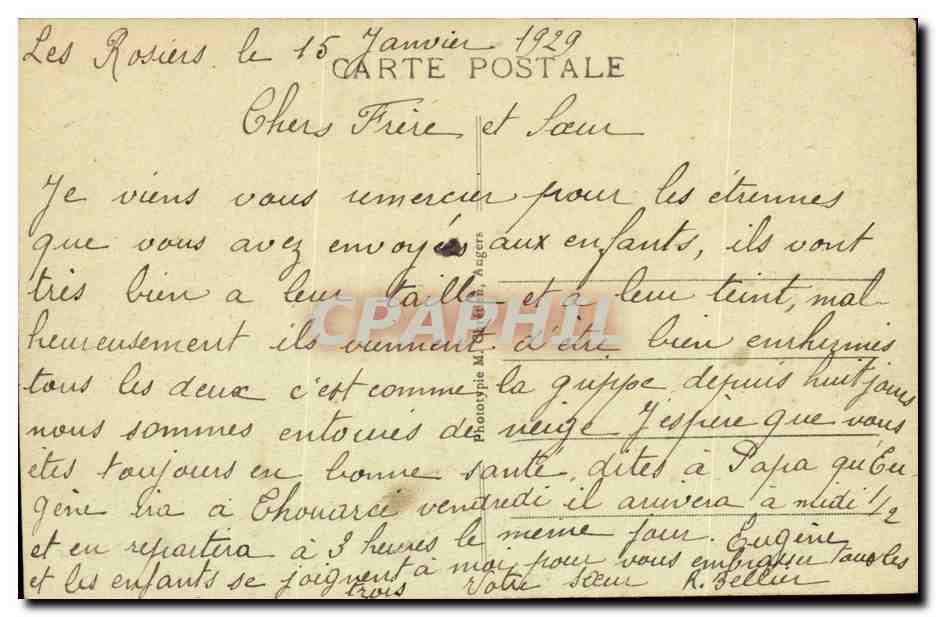 Les Rosiers le 15 Janvier 1929
CARTE POSTALE
Chers Frère et Sœur
Je viens vous remercier pour les étrennes
que vous avez envoyés aux enfants, ils vont
très bien a leur taille et a leur teint, mal-
heureusement ils viennent d'étre bien enrhumés
tous les deux c'est comme la grippe depuis huit jours
nous sommes entourés de neige J'espère que vous
êtes toujours en bonne santé, dites à Papa qu'Eu-
gène ira à Thouarcé vendredi il arrivera à midi 1/2
et en repartira à 3 heures le même jour. Eugène
et les enfants se joignent à moi pour vous embrasser tous les
trois Votre sœur R. Bellier
Phototypie M. Angers
CPAPHIL